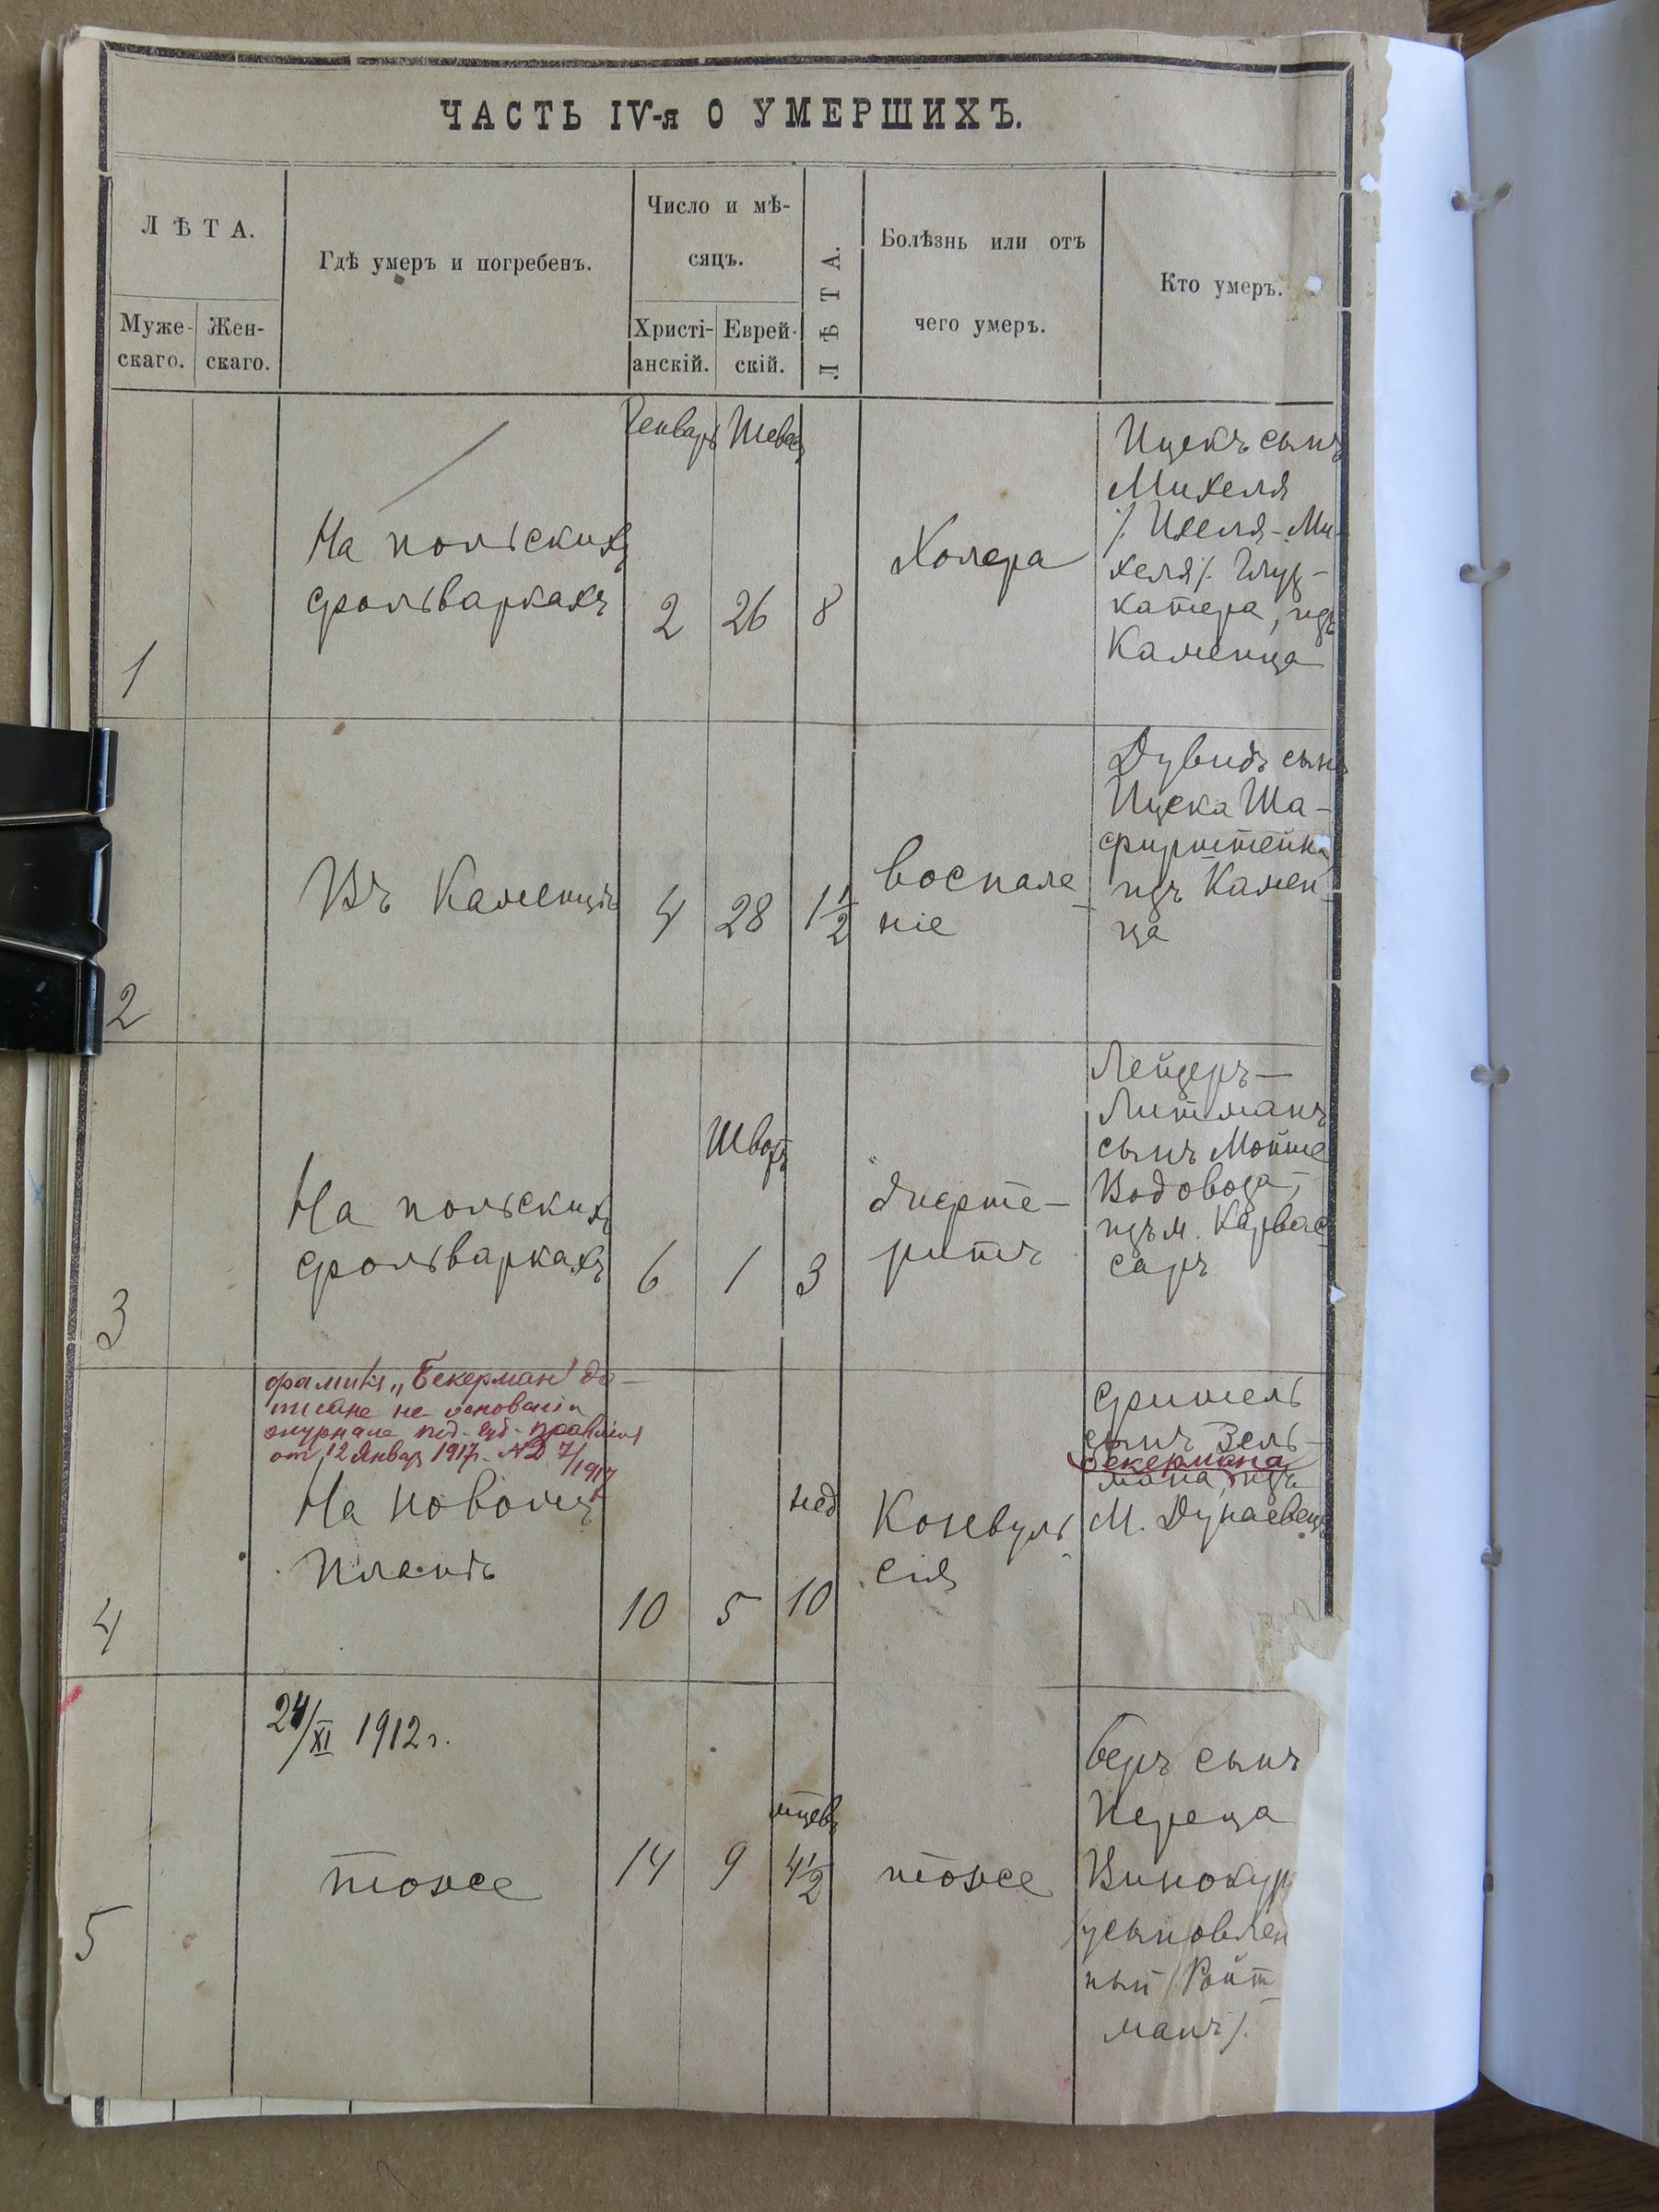 ЧАСТЬ IV-я О УМЕРШИХЪ.
ЛѢТА.
Муже-
скаго.
Жен-
скаго.
Гдѣ умеръ и погребенъ.
Число и мѣ-
сяцъ.
Христі-
анскій.
Еврей-
скій.
ЛѢТА.
Болѣзнь или отъ
чего умеръ.
Кто умеръ.
1
На польскихъ
фольваркахъ
Генварь
2
Шеват
26
8
Холера
Ицекъ сынъ
Михеля
/. Ихеля-Ми-
хеля/.
катера, изъ
Каменца
2
Въ Каменцѣ
4
28
1½
Воспале-
ніе
Дувидъ сынъ
Ицека Ша-
фирштейна
изъ Камен-
ца
3
На польскихъ
фольваркахъ
6
Шватъ
1
3
дифте-
ритъ
Лейзеръ-
Литманъ
сынъ Мойше
Водовоза,
изъ м. Карвас-
саръ
4
фамилія „Бекерман" до-
писана на основаніи
журнала под. губ. правленія
от 12 Январ 1917г. № 7/1917
На новомъ
планѣ
10
5
нед
10
Конвуль
сія
Фишель
сынъ Зель-
Бекермана
мана, изъ
М. Дунаевецъ
5
24/XI 1912 г.
тоже
14
9
мцевъ
4½
тоже
Беръ сынъ
Переца
Винокур
/усыновлен
ный /. Ройт-
манъ/.